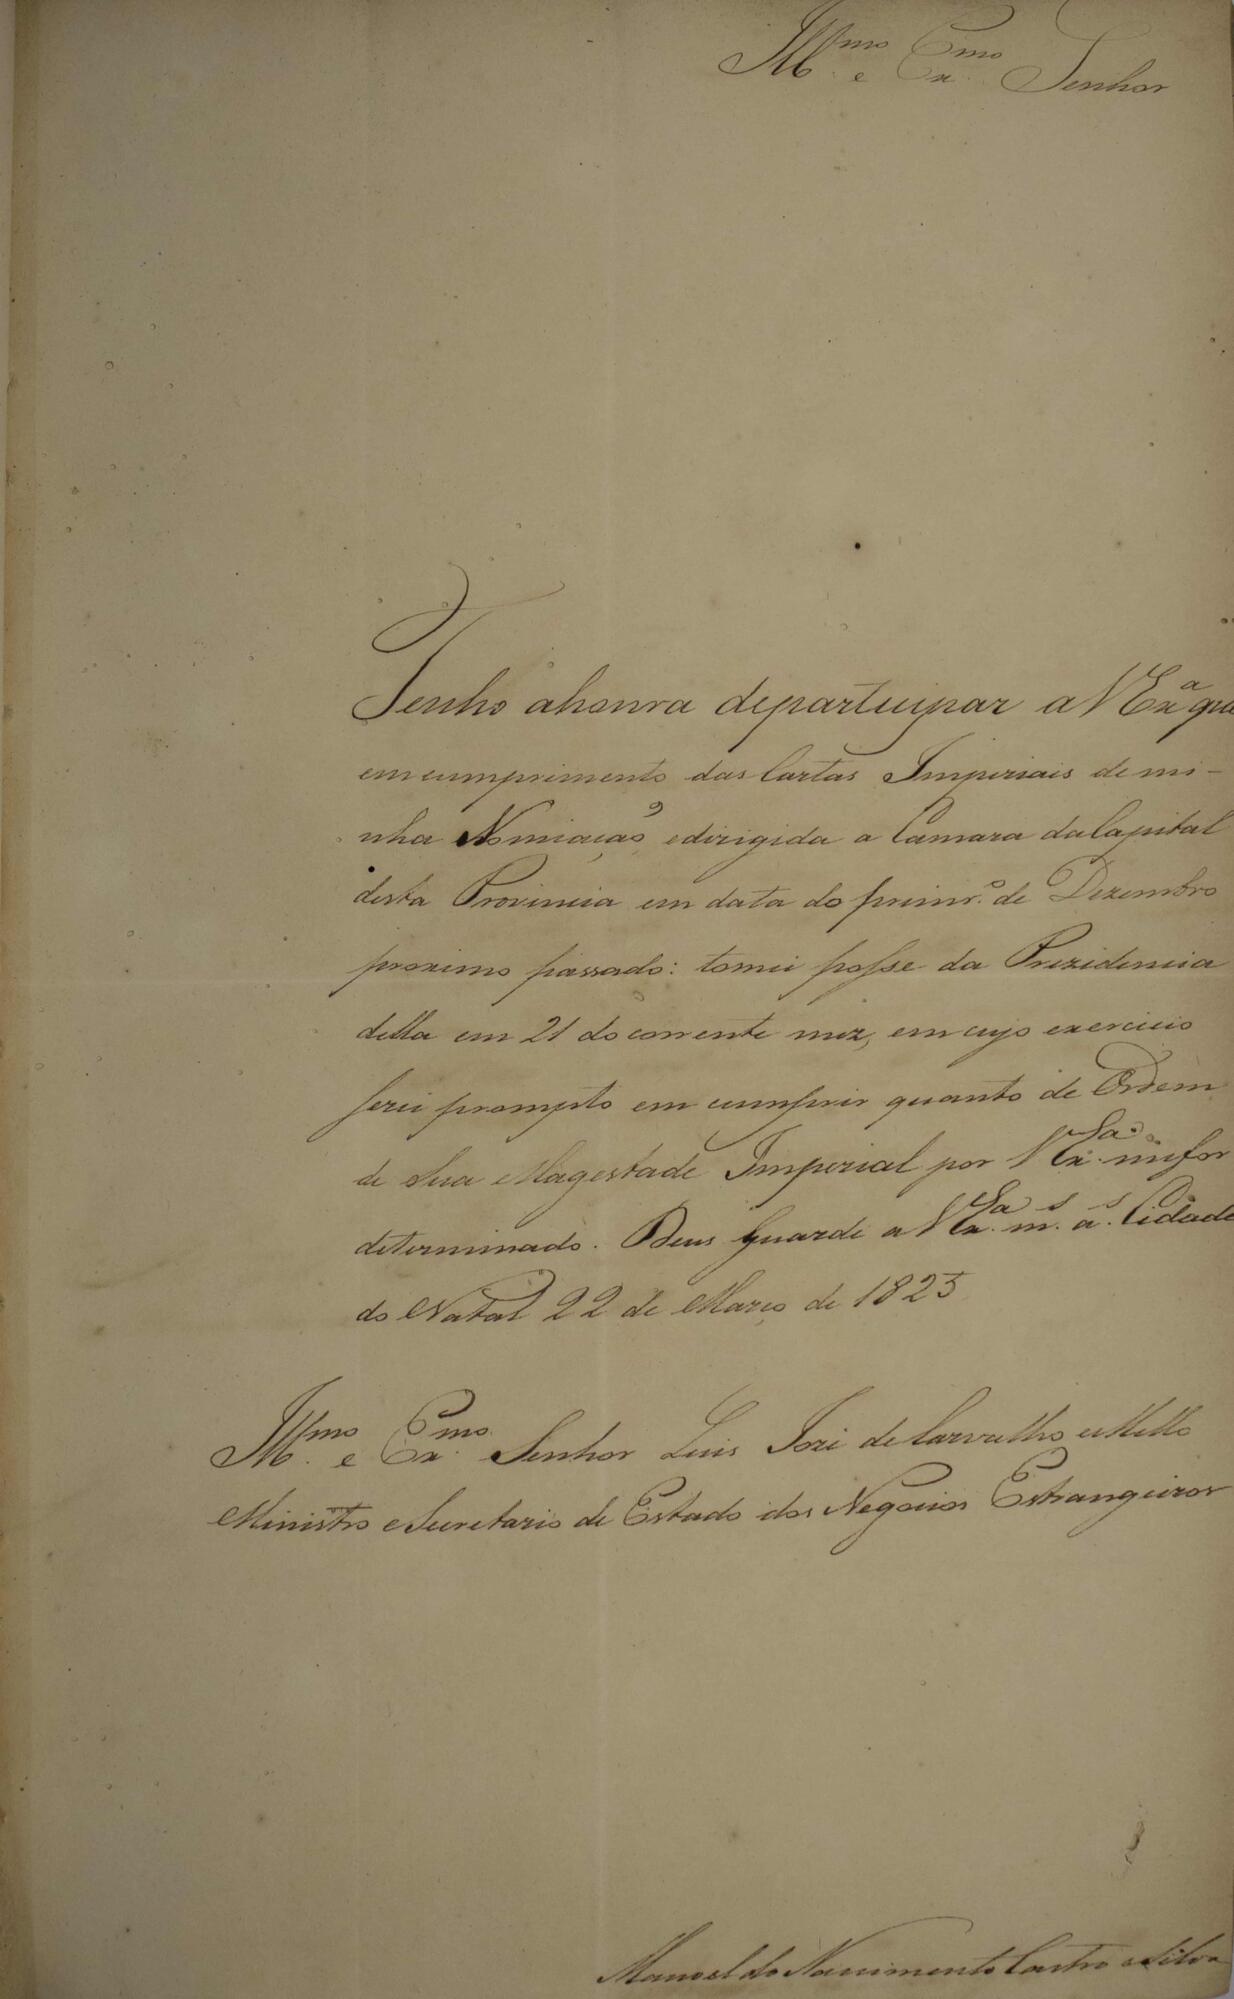 Ill.mo e Ex.mo Senhor
Tenho ahonra departecipar a V Ex.a que
em cumprimento das Cartas Imperiais de mi-
nha Nomiação, edirigida a Camara da Capital
desta Provincia em data do primr.o de Dezembro
proximo passado: tomei posse da Prezidencia
della em 21 do corrente mez, em cujo exercicio
serei prompto em cumprir quanto de Ordem
de Sua Magestade Imperial por V Ex.a mefor
determinado. Deus Guarde a V Ex.a m.s a.s Cidade
do Natal 22 de Março de 1825
Ill.mo e Ex.mo Senhor Luis Jozé de Carvalho eMello
Ministro eSecretario de Estado dos Negocios Estrangeiros
Manoel do Nascimento Castro eSilva